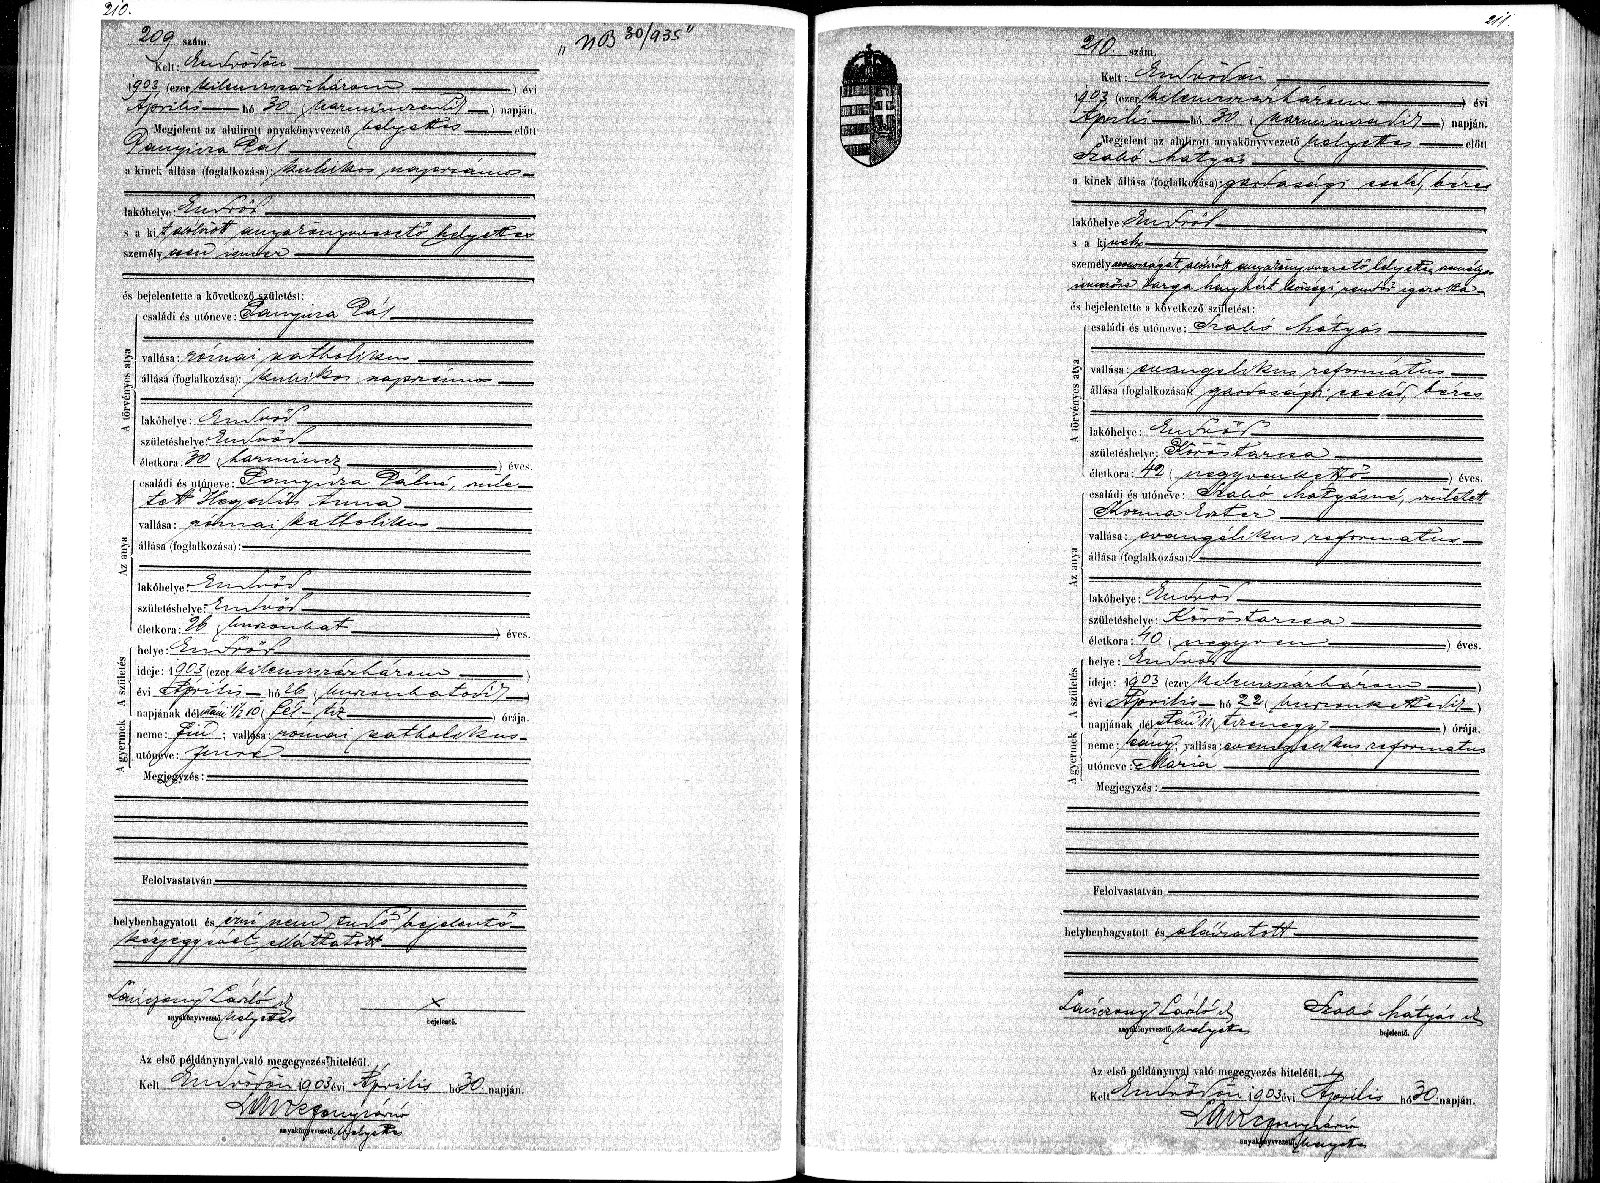 210.
209 szám.
„NB 30/935"
Kelt: Endrődön
1903 (ezer kilenczszázhárom) évi
Április hó 30 (harminczadik) napján.
Megjelent az alulirott anyakönyvvezető helyettes előtt
Pál
a kinek állása (foglalkozása): kubikos napszámos
lakóhelye: Endrőd
s a kit alólirott anyakönyvvezető helyettes
személyesen ismer
és bejelentette a következő születést:
A törvényes atya
családi és utóneve: Pál
vallása: római katholikus
állása (foglalkozása): kubikos napszámos
lakóhelye: Endrőd
születéshelye: Endrőd
életkora: 30 (harmincz) éves.
Az anya
családi és utóneve: Pálné, szüle-
tett Hegedűs Anna
vallása: római katholikus
állása (foglalkozása):
lakóhelye: Endrőd
születéshelye: Endrőd
életkora: 26 (huszonhat) éves.
A születés
helye: Endrőd
ideje: 1903 (ezer kilenczszázhárom)
évi Április hó 26 (huszonhatodik)
napjának délutáni 1/2 10 (fél-tíz) órája.
A gyermek
neme: fiú; vallása: római katholikus
utóneve: Imre
Megjegyzés:
Felolvastatván
helybenhagyatott és írni nem tudó bejelentő
kézjegyével elláttatott
Lánczony László
anyakönyvvezető helyettes
x
bejelentő.
Az első példánynyal való megegyezés hiteléül.
Kelt Endrődön 1903 évi Április hó 30 napján.
anyakönyvvezető helyettes
211.
210. szám.
Kelt: Endrődön
1903 (ezer kilenczszázhárom) évi
Április hó 30 (harminczadik) napján.
Megjelent az alulirott anyakönyvvezető helyettes előtt
Szabó Mátyás
a kinek állása (foglalkozása): gazdasági cseléd, béres
lakóhelye Endrőd
s a kinek
személyazonosságát alólirott anyakönyvvezető helyettes személyes
ismerőse Varga községi rendőr igazolta
és bejelentette a következő születést:
A törvényes atya
családi és utóneve: Szabó Mátyás
vallása: evangélikus református
állása (foglalkozása): gazdasági cseléd, béres
lakóhelye: Endrőd
születéshelye: Köröstarcsa
életkora: 42 (negyvenkettő) éves.
Az anya
családi és utóneve: Szabó Mátyásné, született
Kozma Eszter
vallása: evangélikus református
állása (foglalkozása):
lakóhelye: Endrőd
születéshelye: Köröstarcsa
életkora: 40 (negyven) éves.
A születés
helye: Endrőd
ideje: 1903 (ezer kilenczszázhárom)
évi Április hó 22 (huszonkettedik)
napjának délutáni 11 (tizenegy) órája.
A gyermek
neme: leány; vallása: evangelikus református
utóneve: Mária
Megjegyzés:
Felolvastatván
helybenhagyatott és aláiratott
Lánczony László
anyakönyvvezető helyettes
Szabó Mátyás
bejelentő.
Az első példánynyal való megegyezés hiteléül.
Kelt Endrődön 1903 évi Április hó 30 napján.
anyakönyvvezető helyettes